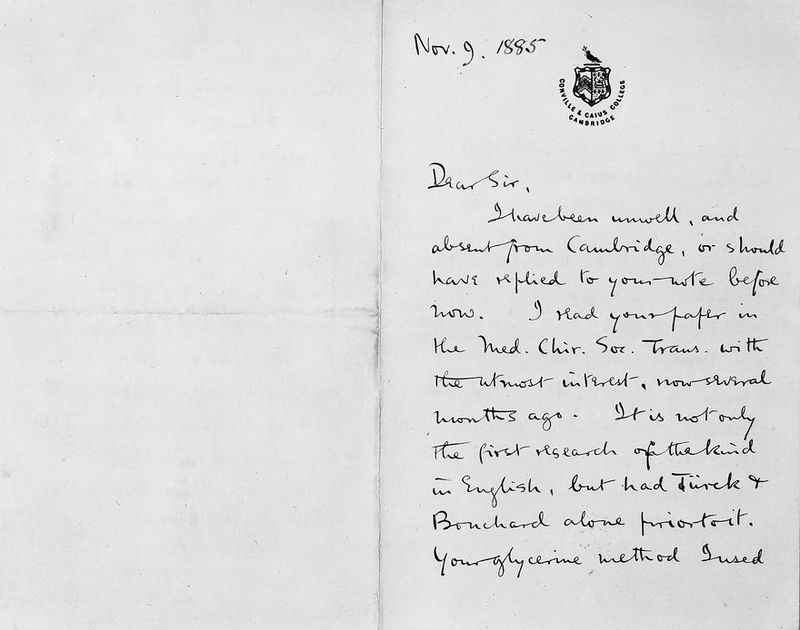 Nov. 9. 1885
GONVILLE & CAIUS COLLEGE
CAMBRIDGE
Dear Sir,
I have been unwell, and
absent from Cambridge, or should
have replied to your note before
now. I read your paper in
the Med. Chir. Soc. Trans. with
the utmost interest, now several
months ago. It is not only
the first research of the kind
in English, but had Türck &
Bouchard alone prior to it.
Your glycerine method I used